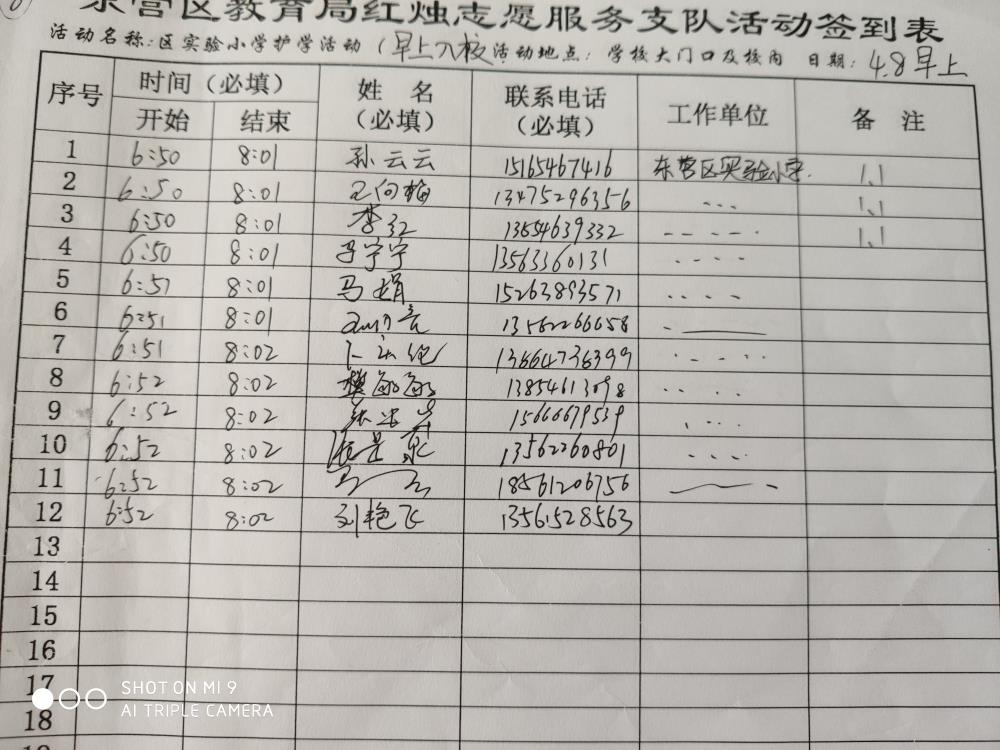 东营区教育局红烛志愿服务支队活动签到表
活动名称:区实验小学护学活动(早上入校 活动地点:学校大门口及校内 日期:4.8早上
序号 时间(必填) 姓名(必填) 联系电话(必填) 工作单位 备注
开始 结束
1 6:50 8:01 孙云云 15165467416 东营区实验小学. 1.1
2 6:50 8:01 王向梅 13475296356 1.1
3 6:50 8:01 李红 13854639332 1.1
4 6:50 8:01 马宁宁 13563360131
5 6:51 8:01 马娟 15263893571
6 6:51 8:01 13562266658
7 6:51 8:02 13864736399
8 6:52 8:02 樊敏敏 13854613098
9 6:52 8:02 15666679539
10 6:52 8:02 13562260801
11 6:52 8:02 18561206756
12 6:52 8:02 刘艳飞 13561528563
13
14
15
16
17
18
SHOT ON MI 9
AI TRIPLE CAMERA